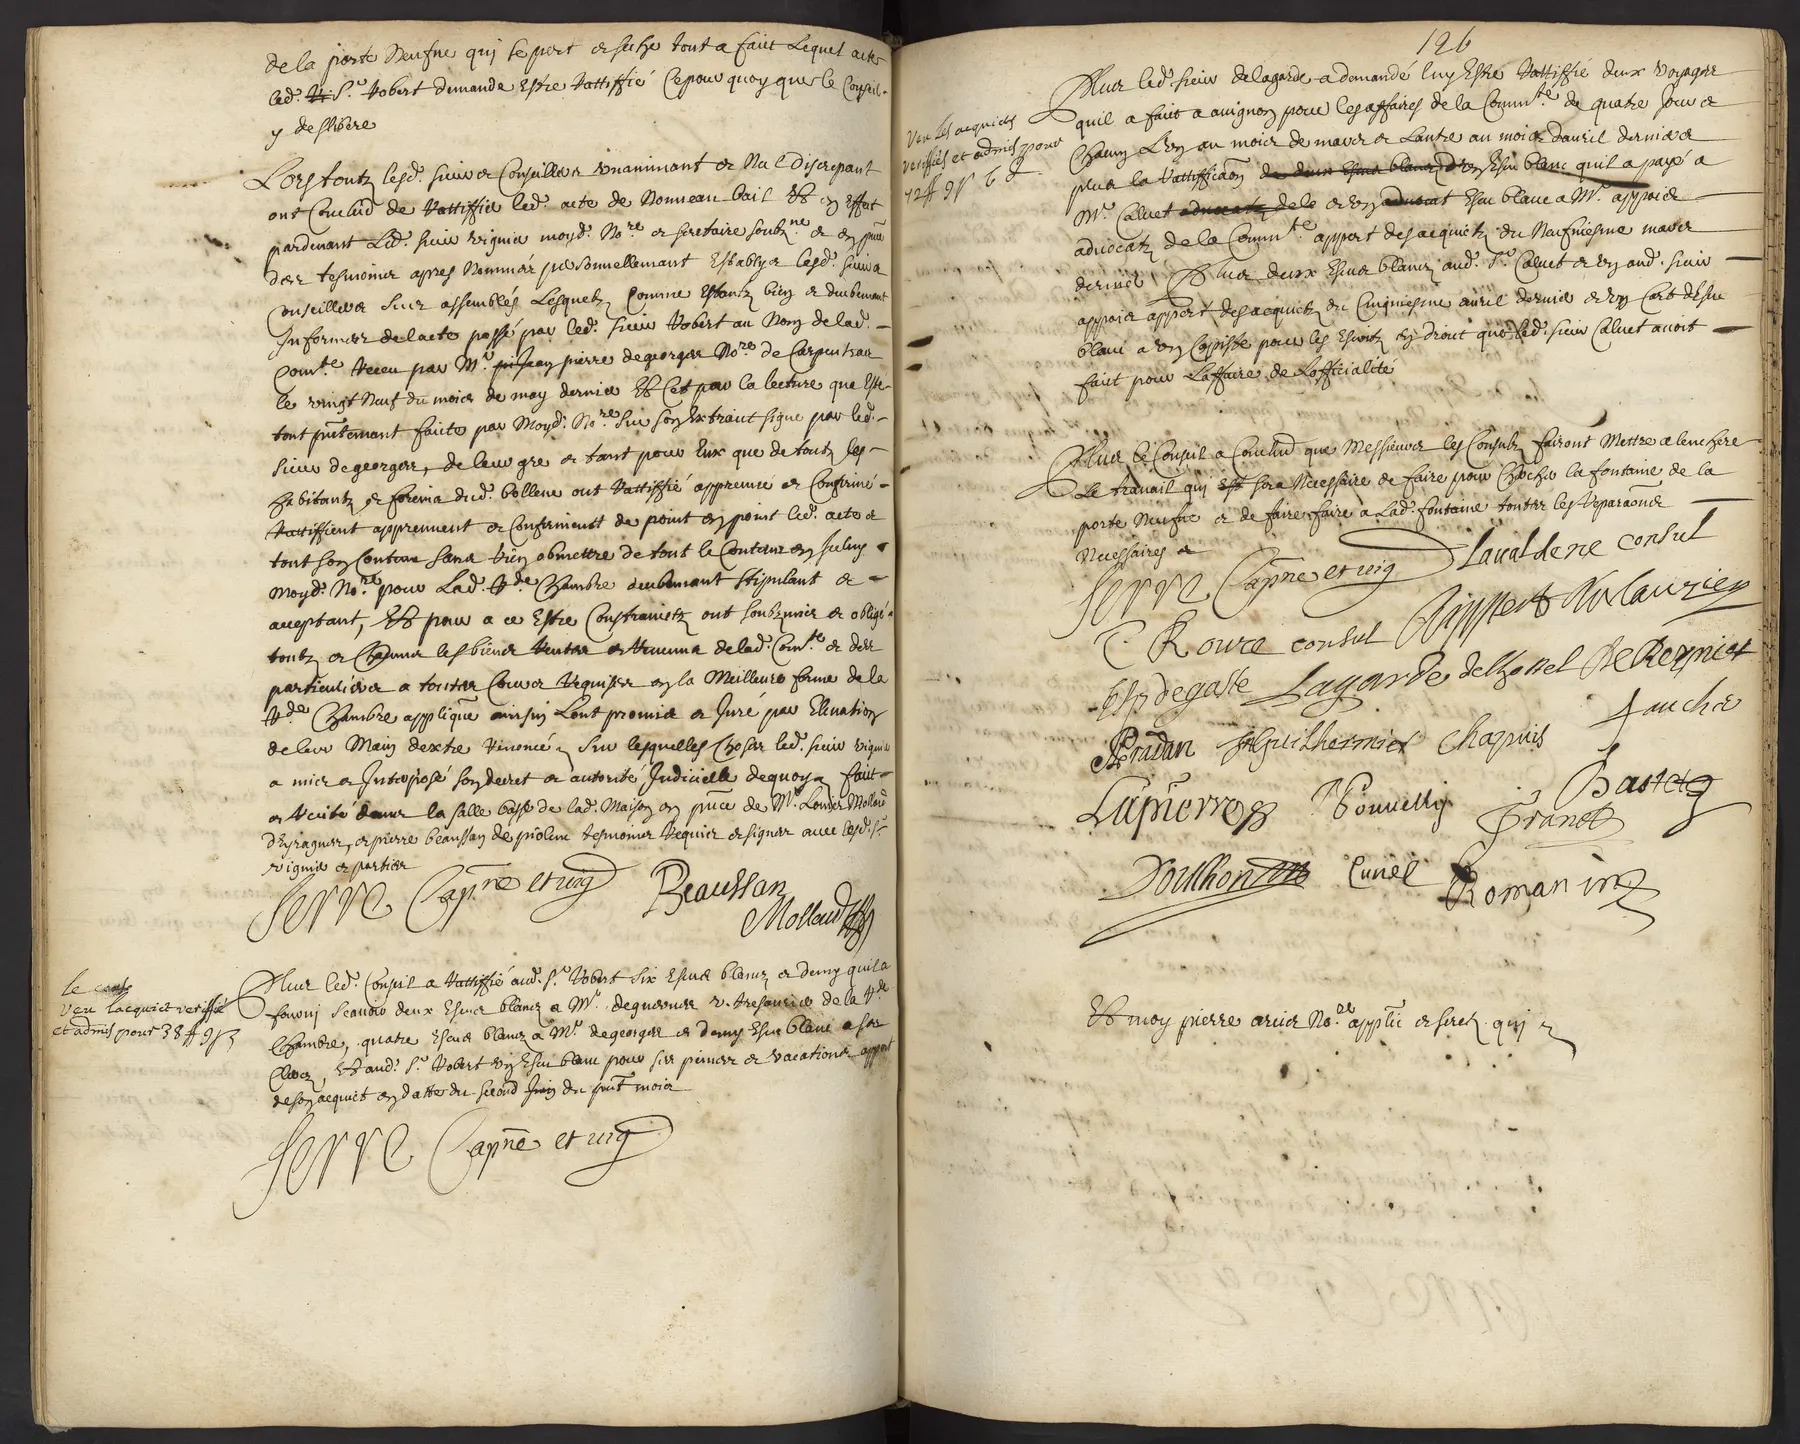 de la porte Neufve quj se pert et seche tout a faict Lequel acte
led. Sr. Robert demande Estre Rattiffié Cepourquoy que le Conseil
y deslibere
Lors toutz lesd. sieurs Conseilliers unanimant et Nul discrepant
ont Conclud de Rattiffier led. acte de Nouveau bail Et en effect
pardevant Led. sieur viguier moyd. Nore. et secretaire soubzne. et en pnce
des tesmoins apres Nommés personnellement Establys lesd. sieurs
Conseilliers sieurs assemblés Lesquelz Comme Estantz bien et deubement
Informes de lacte passé par led. sieur Robert au Nom de lad.
Comte. Receu par Mr. Jean pierre degeorges Nore. de Carpentras
le vingt Neuf du mois de may dernier Et Ce par la lecture que Este
tout pntemant faicte par Moyd. Nore. sur son Extraict signe par led.
sieur degeorges, de leur gre et tant pour Eux que de toutz les
habitantz et forains dud. bollene ont Rattiffié appreuvé et Confirmé
Rattiffient appreuvent et Confirment de point en point led. acte et
tout son Contenu sans Rien obmettre de tout le Contenu en Iceluy
moyd. Nore. pour Lad. Rde. Chambre deubemant stipulant et
acceptant, Et pour a ce Estre Constrainctz ont soubzmis et obligé
toutz et Chacuns les biens Rentes et Revenus de lad. Comte. et des
particuliers a toutes Cours Requises en la Meilleure forme de la
Rde. Chambre appliqué ainsin Lont promis et Juré par Elevation
de leur Main dextre Renoncé Sur lesquelles Choses led. sieur viguier
a mis et Interposé son decret et autorité Judicielle dequoy faict
et Recité dans la salle basse de lad. Maison en pnce de Mr. Louis Mollard
d'Eyragues, et pierre beaussan de piolenc tesmoins Requis et signés avec lesd. srs.
viguier et parties
Serre Capne et vig
Beaussan
Mollard
Plus led. Conseil a Rattiffié aud. Sr. Robert six Escus blancz et demy quil a
fourny scavoir deux Escus blancz a Mr. deguernes v. tresorier de la Rde
Chambre, quatre Escus blancz a Mr. degeorges et demy Escu blanc a son
Clerc, Et aud. Sr. Robert un Escu blanc pour ses peines et vacations appert
de son acquict en datte du second du pnt mois
veu lacquict verifié
et admis pour 38 ₶ 9 s 3
Serre Capne et vig
126
Plus led. sieur delagarde a demandé luy Estre Rattiffié deux voyages
quil a faict a avignon pour les affaires de la Commte. de quatre Jours
Chacun L'un au mois de mars et Lautre au mois davril dernier
plus la Rattifficaon Escu blanc quil a payé a
Mr. Calvet et un Escu blanc a Mr. appais
advocatz de la Commte. appert des acquictz du Neufviesme mars
dernier, Plus deux Escus blancz aud. Sr. Calvet et un aud. sieur
appais appert des acquictz du Cinquiesme avril dernier et un Cart dEscu
blanc a un Copiste pour les Escritz en droict que led. sieur Calvet avoit
faict pour Laffaire de Lofficialité
veu les acquicts
veriffiés et admis pour
42 ₶ 9 s 6 d
Plus le Conseil a Conclud que Messieurs les Consulz fairont Mettre a lenchere
Le travail quj sera Necessaire de faire pour Chercher la fontaine de la
porte Neufve et de faire faire a Lad. fontaine toutes les Reparaons
Necessaires
Serre Capne et vig Lavaldene consul
C Roure consul Rippert
Lagarde delhostel De Reynier
Faucher
Pradan Guilhermier Chapuis
Lapierre Bonnelly Bastet
Granet
Dourhon Cunel Romanin
Et moy pierre Nore. applic et secret. quj